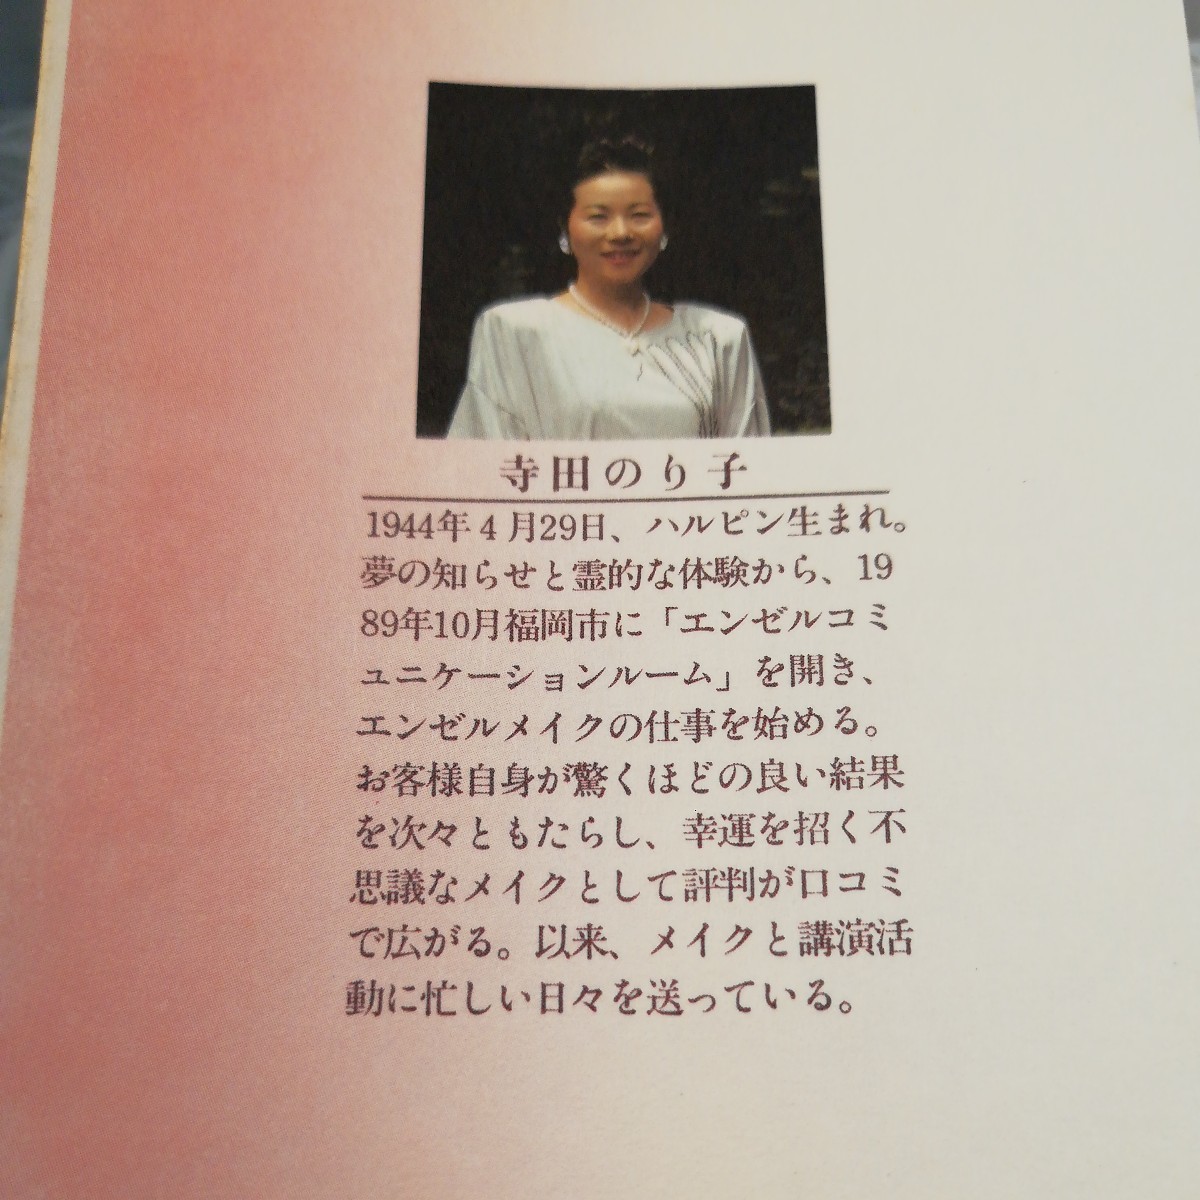 寺田のり子
1944年4月29日、ハルピン生まれ。
夢の知らせと霊的な体験から、19
89年10月福岡市に「エンゼルコミ
ュニケーションルーム」を開き、
エンゼルメイクの仕事を始める。
お客様自身が驚くほどの良い結果
を次々ともたらし、幸運を招く不
思議なメイクとして評判が口コミ
で広がる。以来、メイクと講演活
動に忙しい日々を送っている。